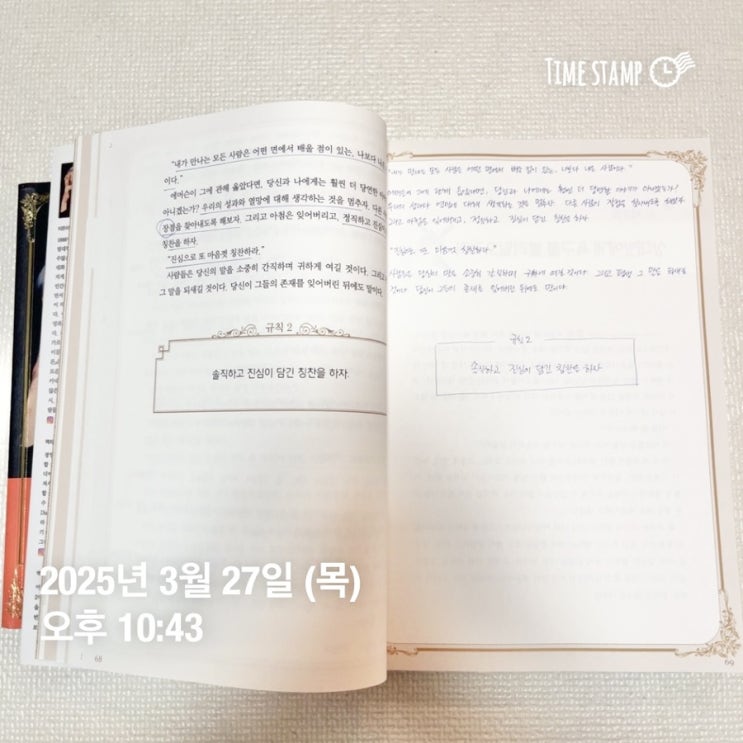 TIME STAMP
"내가 만나는 모든 사람은 어떤 면에서 배울 점이 있는, 나보다 나은
이다."
에머슨이 그에 관해 옳았다면, 당신과 나에게는 훨씬 더 당연한
아니겠는가? 우리의 성과와 열망에 대해 생각하는 것을 멈추자. 다른
장점을 찾아내도록 해보자. 그리고 아첨은 잊어버리고, 정직하고 진심이
칭찬을 하자.
"진심으로 또 마음껏 칭찬하라."
사람들은 당신의 말을 소중히 간직하며 귀하게 여길 것이다. 그리고
그 말을 되새길 것이다. 당신이 그들의 존재를 잊어버린 뒤에도 말이다.
규칙 2
솔직하고 진심이 담긴 칭찬을 하자.
68
모든 사람은 어떤 면에서 배울 점이 있는, 나보다 나은 사람이다."
당신과 나에게는 훨씬 더 당연한
우리의 성과와 열망에 대해 생각하는 것을 멈추자. 다른 사람의 장점을 찾아내도록 해보자
그리고 아첨은 잊어버리고, 정직하고 진심이 담긴 칭찬을 하자
"진심으로 또 마음껏 칭찬하라."
사람들은 당신의 말을 소중히 간직하며 귀하게 여길 것이다. 그리고
것이다. 당신이 그들의 존재를 잊어버린 뒤에도 말이다.
규칙 2
솔직하고 진심이 담긴 칭찬을 하자
69
2025년 3월 27일 (목)
오후 10:43